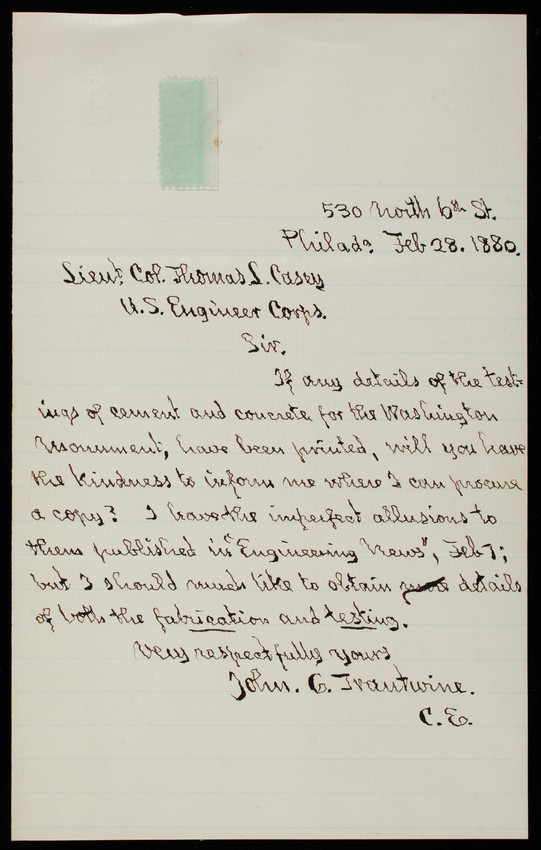 530 North 6th St.
Philada. Feb 28. 1880.
Lieut. Col. Thomas L. Casey
U.S. Engineer Corps.
Sir.
If any details of the test-
ings of cement and concrete for the Washington
Monument, have been printed, will you have
the kindness to inform me where I can procure
a copy? I have the imperfect allusions to
them published in "Engineering News", Feb 7;
but I should much like to obtain more details
of both the fabrication and testing.
Very respectfully yours
John. C. Trautwine.
C.E.